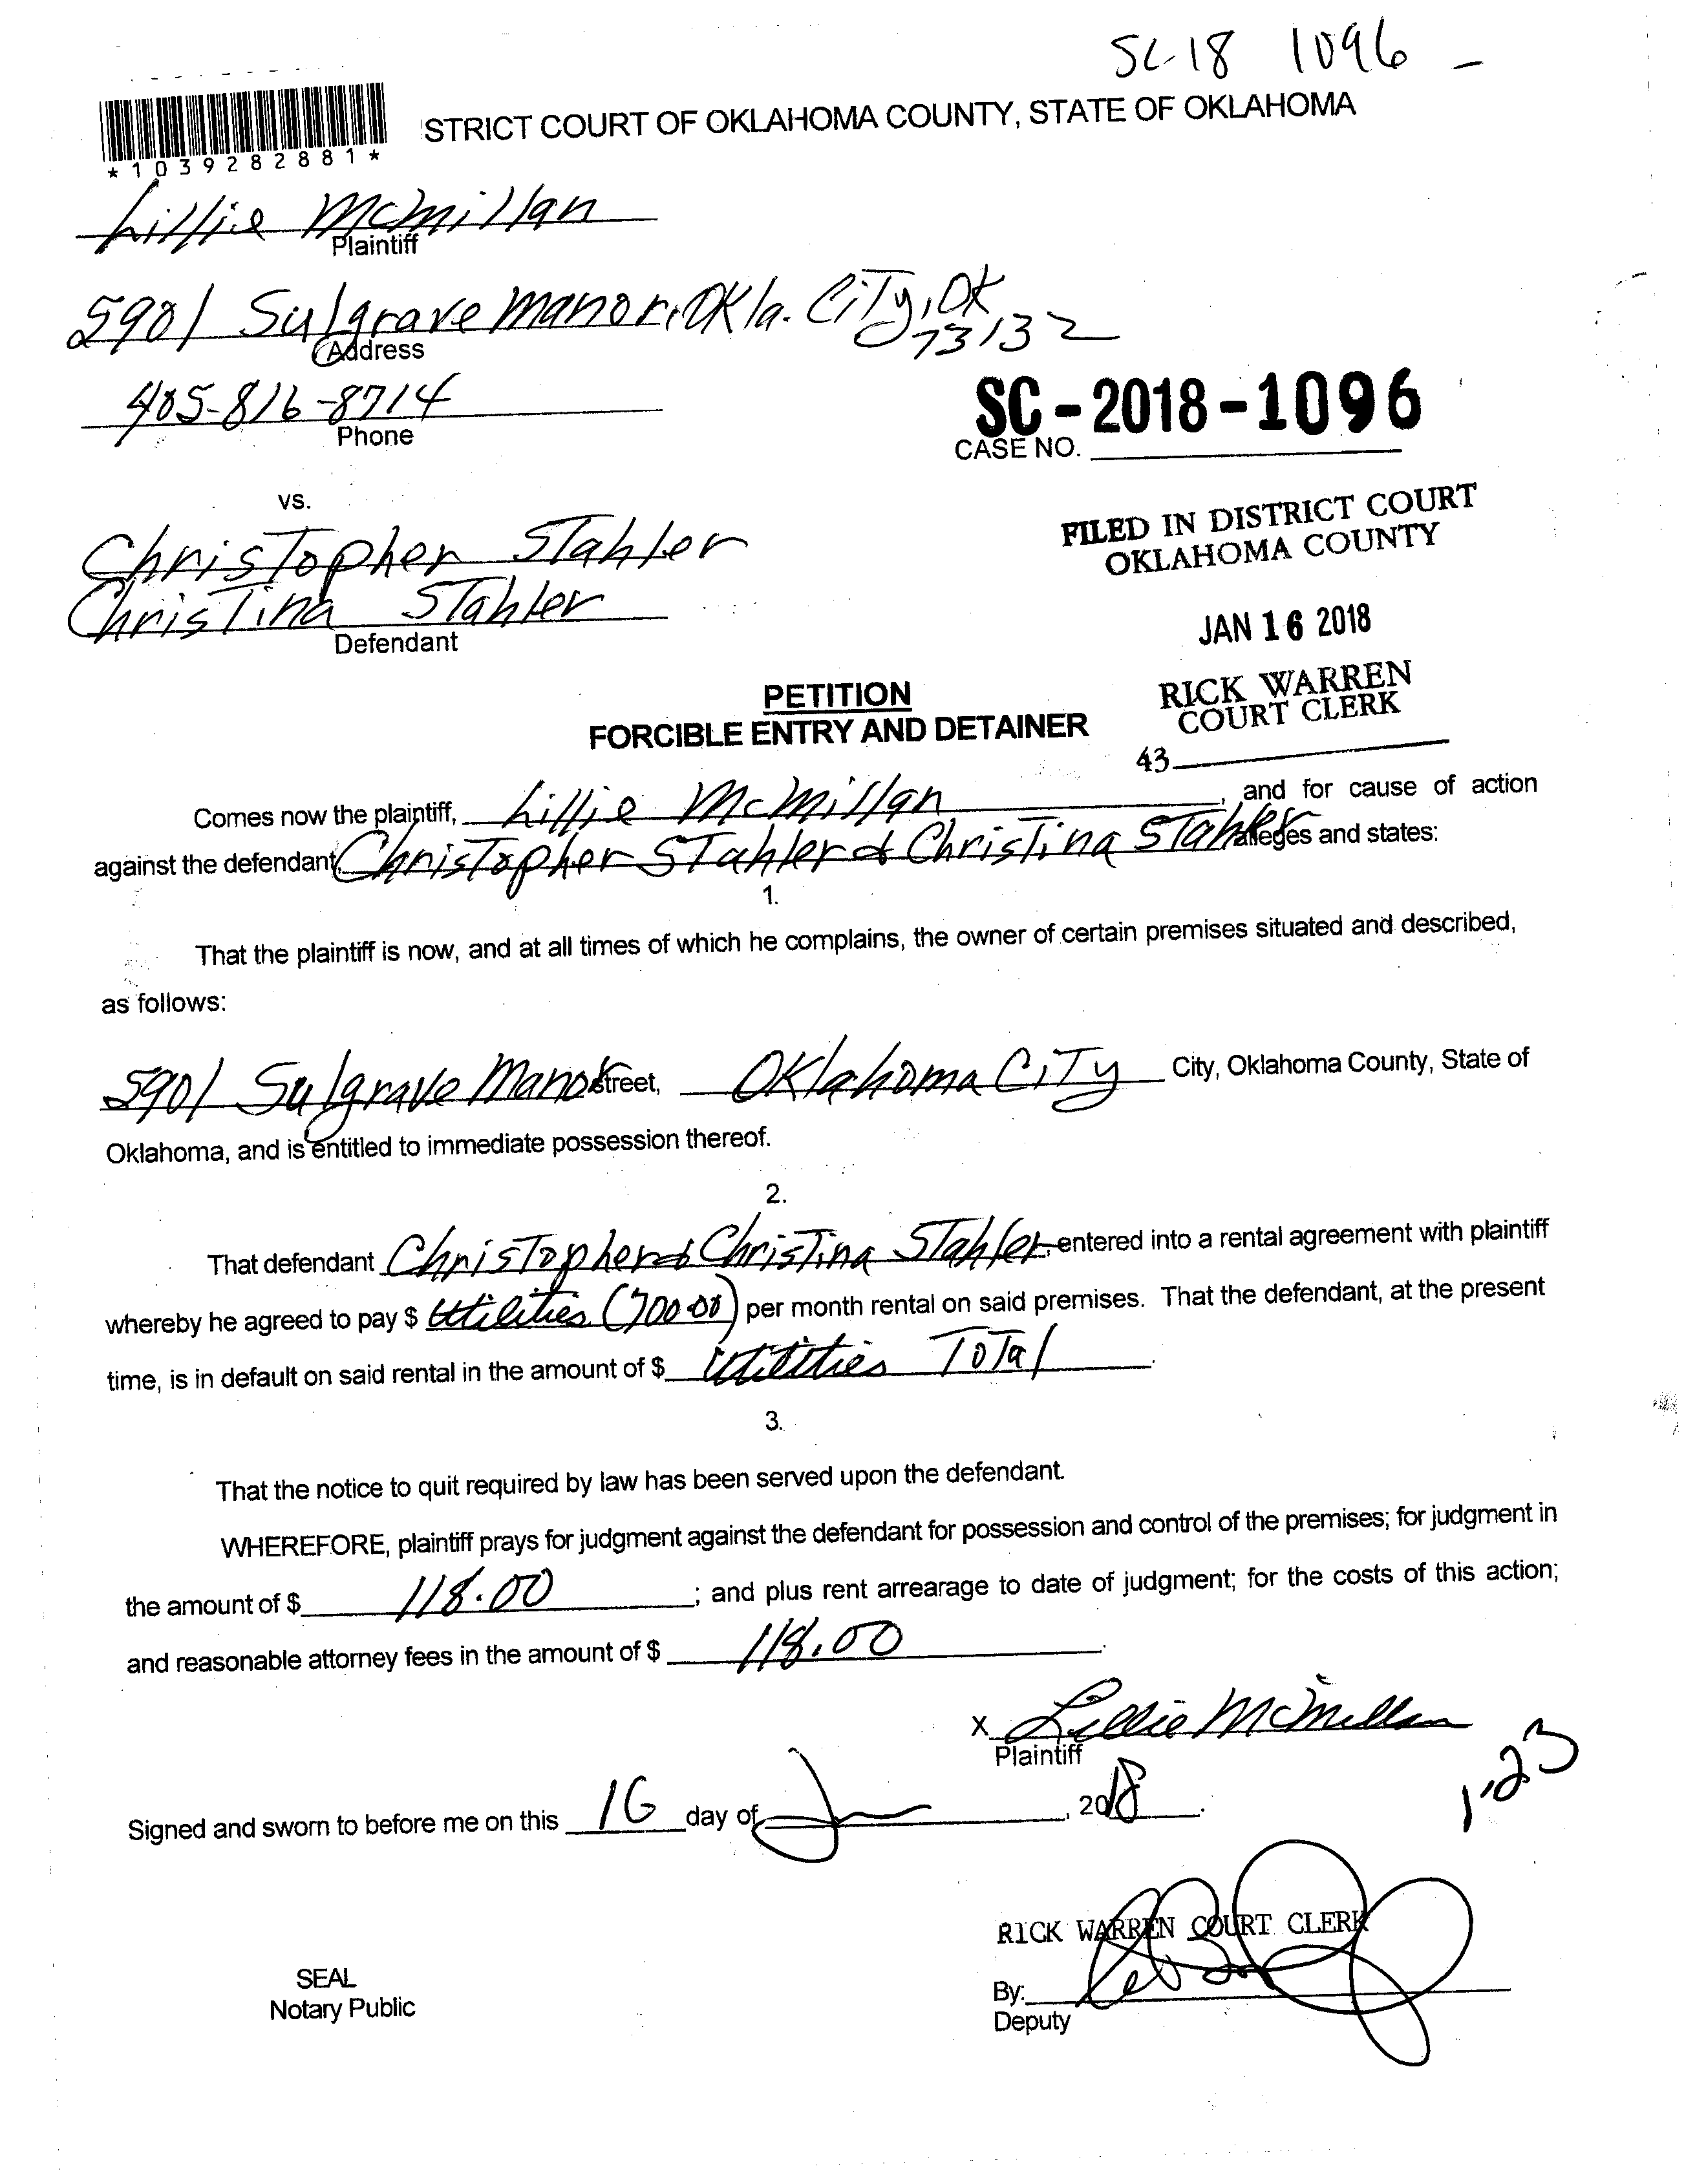 SC-18 1096 -
STRICT COURT OF OKLAHOMA COUNTY, STATE OF OKLAHOMA
*1039282881*
Lillie McMillan
Plaintiff
5901 Sulgrave Manor, Okla. City, OK
73132
Address
405-816-8714
Phone
SC-2018-1096
CASE NO.
vs.
Christopher Stahler
Christina Stahler
Defendant
FILED IN DISTRICT COURT
OKLAHOMA COUNTY
JAN 16 2018
RICK WARREN
COURT CLERK
43
PETITION
FORCIBLE ENTRY AND DETAINER
Comes now the plaintiff, Lillie McMillan, and for cause of action
against the defendant, Christopher Stahler & Christina Stahler alleges and states:
1.
That the plaintiff is now, and at all times of which he complains, the owner of certain premises situated and described,
as follows:
5901 Sulgrave Manor Street, Oklahoma City City, Oklahoma County, State of
Oklahoma, and is entitled to immediate possession thereof.
2.
That defendant Christopher & Christina Stahler, entered into a rental agreement with plaintiff
whereby he agreed to pay $ Utilities (700.00) per month rental on said premises. That the defendant, at the present
time, is in default on said rental in the amount of $ Utilities Total.
3.
That the notice to quit required by law has been served upon the defendant.
WHEREFORE, plaintiff prays for judgment against the defendant for possession and control of the premises; for judgment in
the amount of $ 118.00; and plus rent arrearage to date of judgment; for the costs of this action;
and reasonable attorney fees in the amount of $ 118.00.
X Lillie McMillan
Plaintiff
1-23
Signed and sworn to before me on this 16 day of Jan, 2018.
RICK WARREN COURT CLERK
By:
Deputy
SEAL
Notary Public